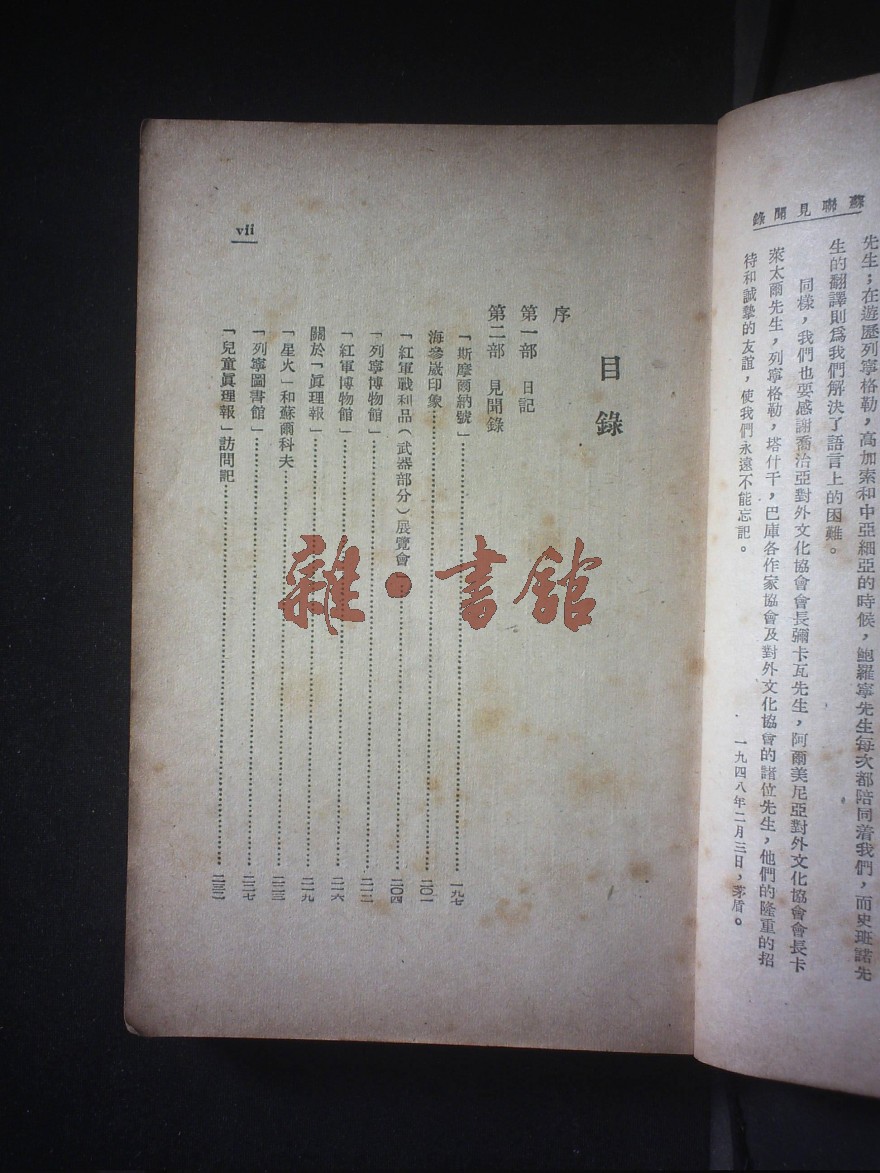 蘇聯見聞錄
先生；在遊歷列寧格勒，高加索和中亞細亞的時候，鮑羅寧先生每次都陪同着我們，而史班諾先
生的翻譯則爲我們解決了語言上的困難。
同樣，我們也要感謝喬治亞對外文化協會會長彌卡瓦先生，阿爾美尼亞對外文化協會會長卡
萊太爾先生，列寧格勒，塔什干，巴庫各作家協會及對外文化協會的諸位先生，他們的隆重的招
待和誠摯的友誼，使我們永遠不能忘記。
一九四八年二月三日，茅盾。
目錄
序
第一部 日記
第二部 見聞錄
「斯摩爾納號」 一九七
海參崴印象 二〇一
「紅軍戰利品（武器部分）展覽會」 二〇四
「列寧博物館」 二一二
「紅軍博物館」 二一六
關於「眞理報」 二一九
「星火」和蘇爾科夫 二二三
「列寧圖書館」 二二七
「兒童眞理報」訪問記 二三二
vii
雜·書館